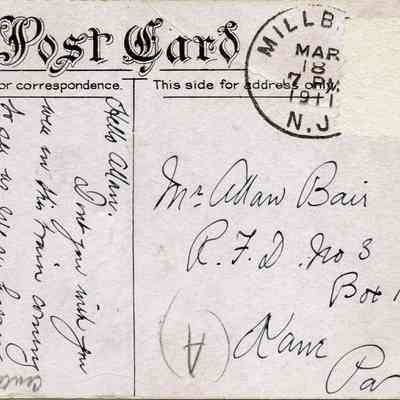 Post Card
or correspondence.
This side for address only
MILLB
MAR
18
7 PM
1911
N.J
Hello Allan.
Dont you wish you
were in this train coming
to
Mr Allan Bair
R.F.D. No 3
Box 1
Kane
Pa
(A)